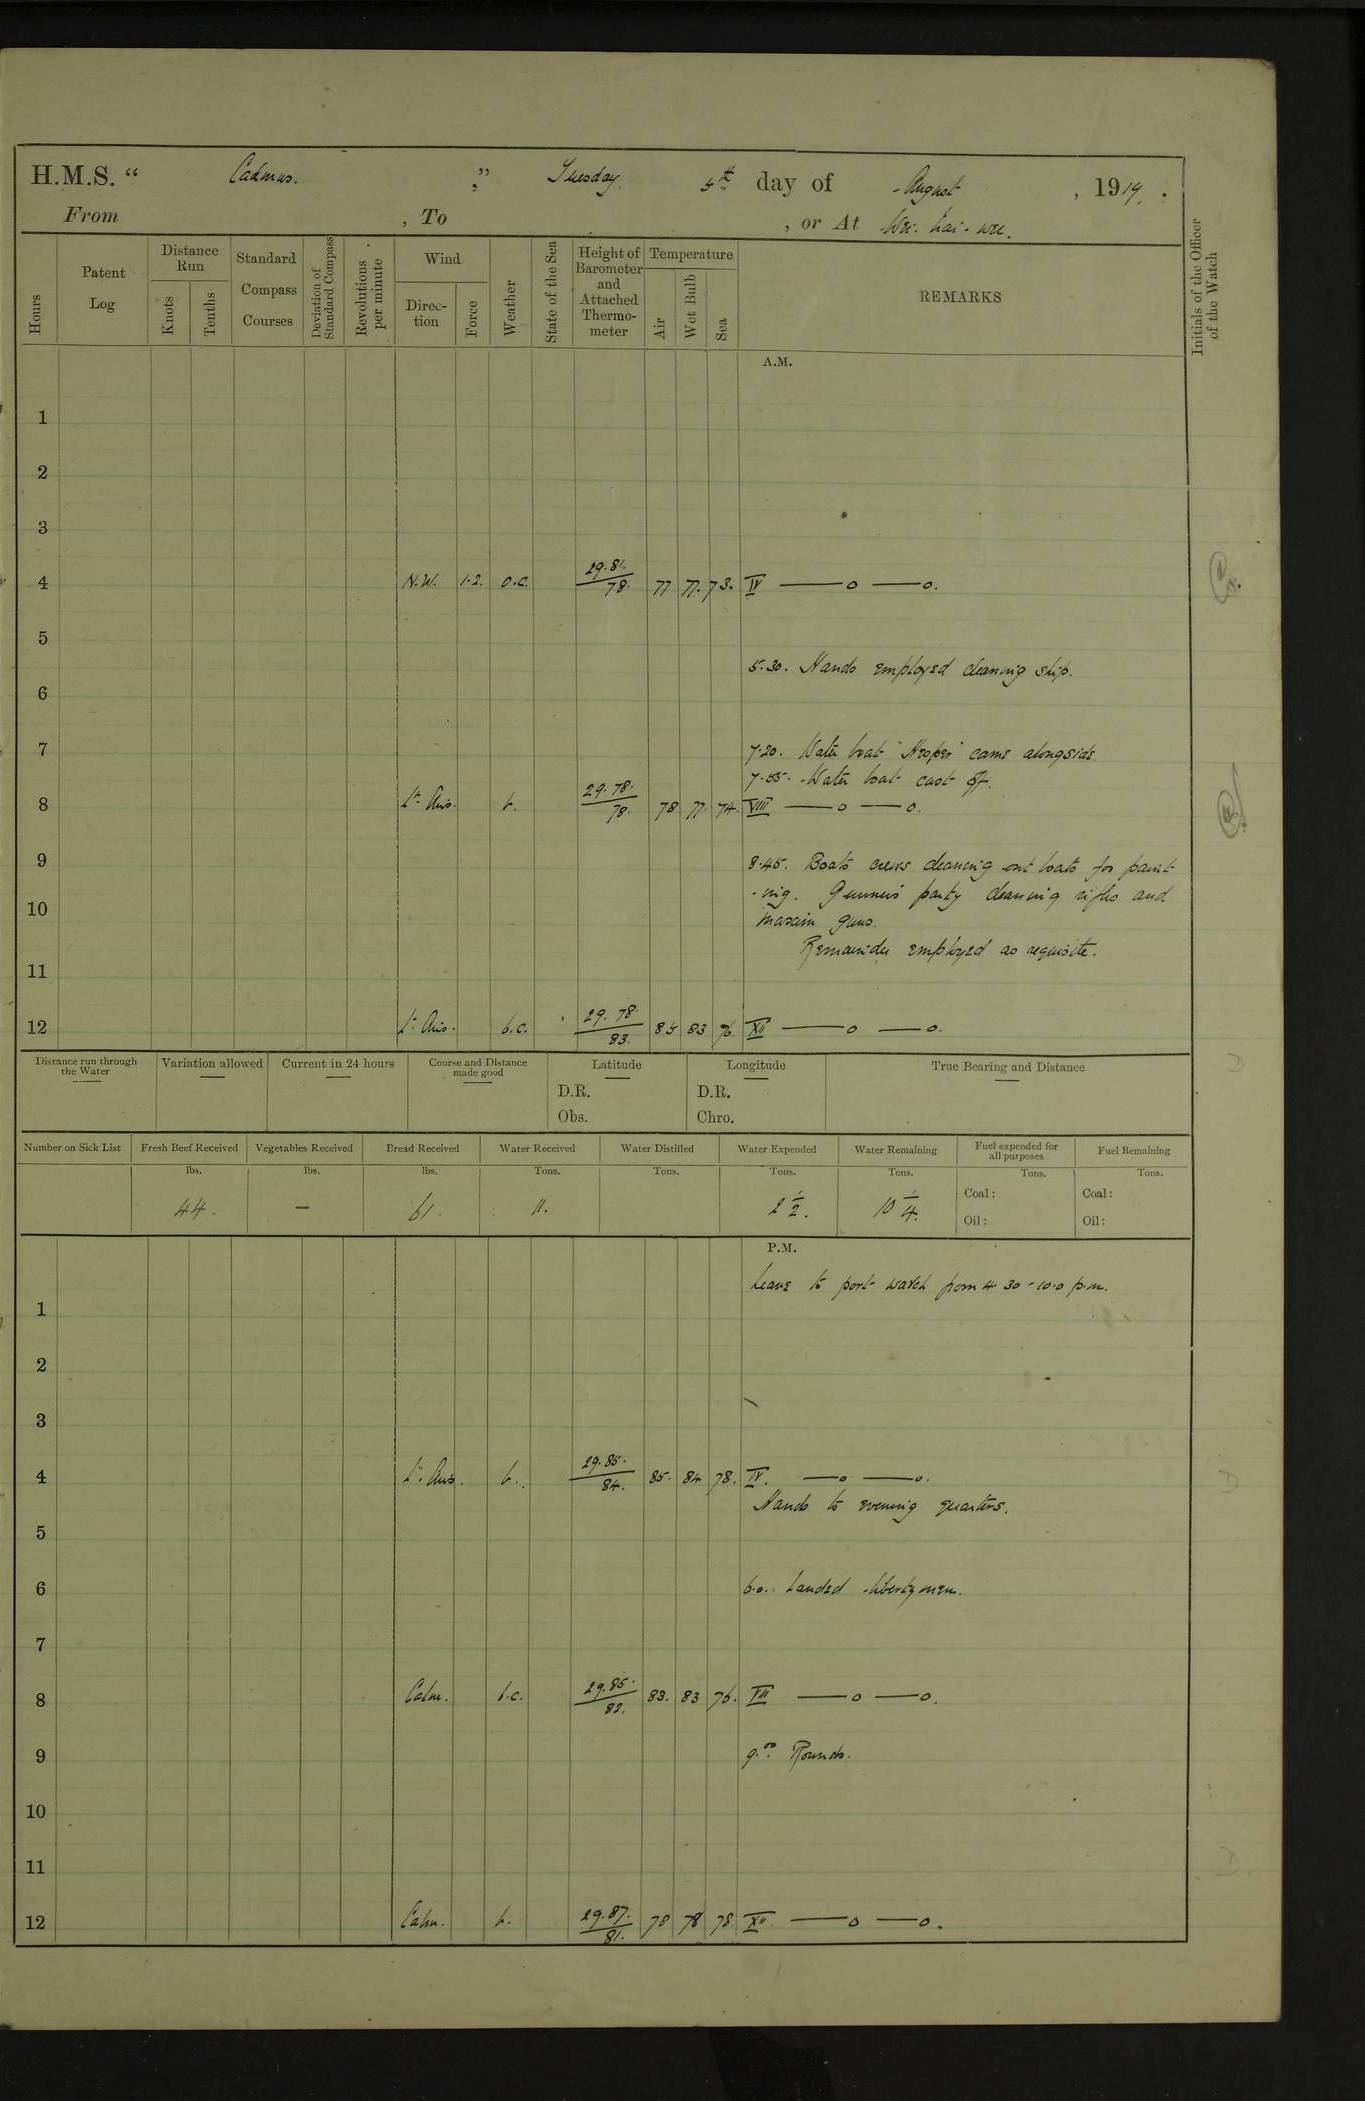 H.M.S. “ Cadmus. ,” Tuesday 5th day of August , 1919.
From , To , or At Wei-hai-wei.
Hours
Patent Log
Distance Run
Knots
Tenths
Standard Compass Courses
Deviation of Standard Compass
Revolutions per minute
Wind
Direc-tion
Force
Weather
State of the Sea
Height of Barometer and Attached Thermo-meter
Temperature
Air
Wet Bulb
Sea
REMARKS
Initials of the Officer of the Watch
A.M.
1
2
3
4 N.W. 1.2. o.c. 29.81. 78. 77 77. 73. IV —o —o.
5
5.30. Hands employed cleaning ship.
6
7 7.20. Water boat came alongside.
7.55. Water boat cast off.
8 Lt. Airs. b. 29.78. 78. 78 77. 74. VIII —o —o.
9 8.45. Boats crews cleaning out boats for paint-
-ing. Gunner's party cleaning rifles and
10 maxim guns.
Remainder employed as requisite.
11
12 Lt. Airs. b.c. 29.78. 83. 85 83 76. XII —o —o.
Distance run through the Water
Variation allowed
Current in 24 hours
Course and Distance made good
Latitude
D.R.
Obs.
Longitude
D.R.
Chro.
True Bearing and Distance
Number on Sick List
Fresh Beef Received
Vegetables Received
Bread Received
Water Received
Water Distilled
Water Expended
Water Remaining
Fuel expended for all purposes
Fuel Remaining
lbs. lbs. lbs. Tons. Tons. Tons. Tons. Tons. Tons.
44. — 61. 11. 2 1/2. 10 1/4. Coal: Coal:
Oil: Oil:
P.M.
Leave to port watch from 4.30 - 10.0 p.m.
1
2
3
4 Lt. Airs. b. 29.85. 84. 85. 84 78. IV. —o —o.
Hands to evening quarters.
5
6 6.0. Landed libertymen.
7
8 Calm. b.c. 29.85. 82. 83. 83 76. VIII —o —o.
9 9.00. Rounds.
10
11
12 Calm. b. 29.87. 81. 78 78 78 XII —o —o.